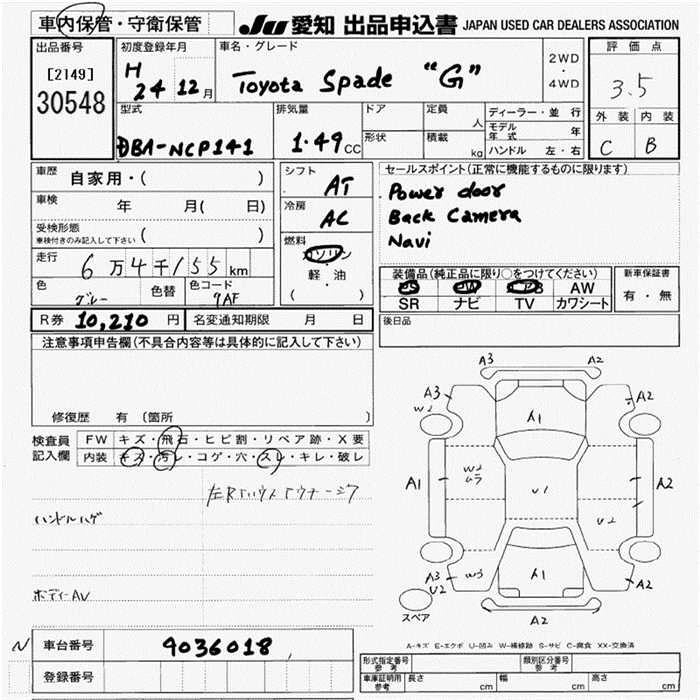 車内保管・守衛保管
JU 愛知 出品申込書 JAPAN USED CAR DEALERS ASSOCIATION
出品番号
[2149]
30548
初度登録年月
H
24 12月
車名・グレード
Toyota Spade "G"
2WD
・
4WD
評価点
3.5
外装 内装
C B
型式
DBA-NCP141
排気量
1.49cc
ドア
形状
定員
人
積載
kg
ディーラー・並行
モデル年式 年
ハンドル 左・右
車歴
自家用・( )
車検
年 月( 日)
受検形態
車検付きのみ記入して下さい ( )
走行
6万4千155km
色
グレー
色替
色コード
9AF
シフト
AT
冷房
AC
燃料
ガソリン
・
軽・油
( )
セールスポイント(正常に機能するものに限ります)
Power door
Back Camera
Navi
装備品(純正品に限り○をつけてください)
PS PW AB AW
SR ナビ TV カワシート
新車保証書
有・無
R券 10,210 円
名変通知期限 月 日
後日品
注意事項申告欄(不具合内容等は具体的に記入して下さい)
修復歴 有 (箇所 )
検査員
記入欄
FW キズ・飛石・ヒビ割・リペア跡・X要
内装 キズ・汚レ・コゲ・穴・スレ・キレ・破レ
ハンドルハゲ
ボディーAV
A3 A2
A3 A2
W2
A1
A1 W2 U1 A2
ムラ
U2
A3 W3 A1 A2
U2
スペア
A2
A-キズ E-エクボ U-凹み W-補修跡 S-サビ C-腐食 XX-交換済
N 車台番号 9036018
登録番号
形式指定番号
参考
類別区分番号
参考
車庫証明用
参考
長さ cm 幅 cm 高さ cm